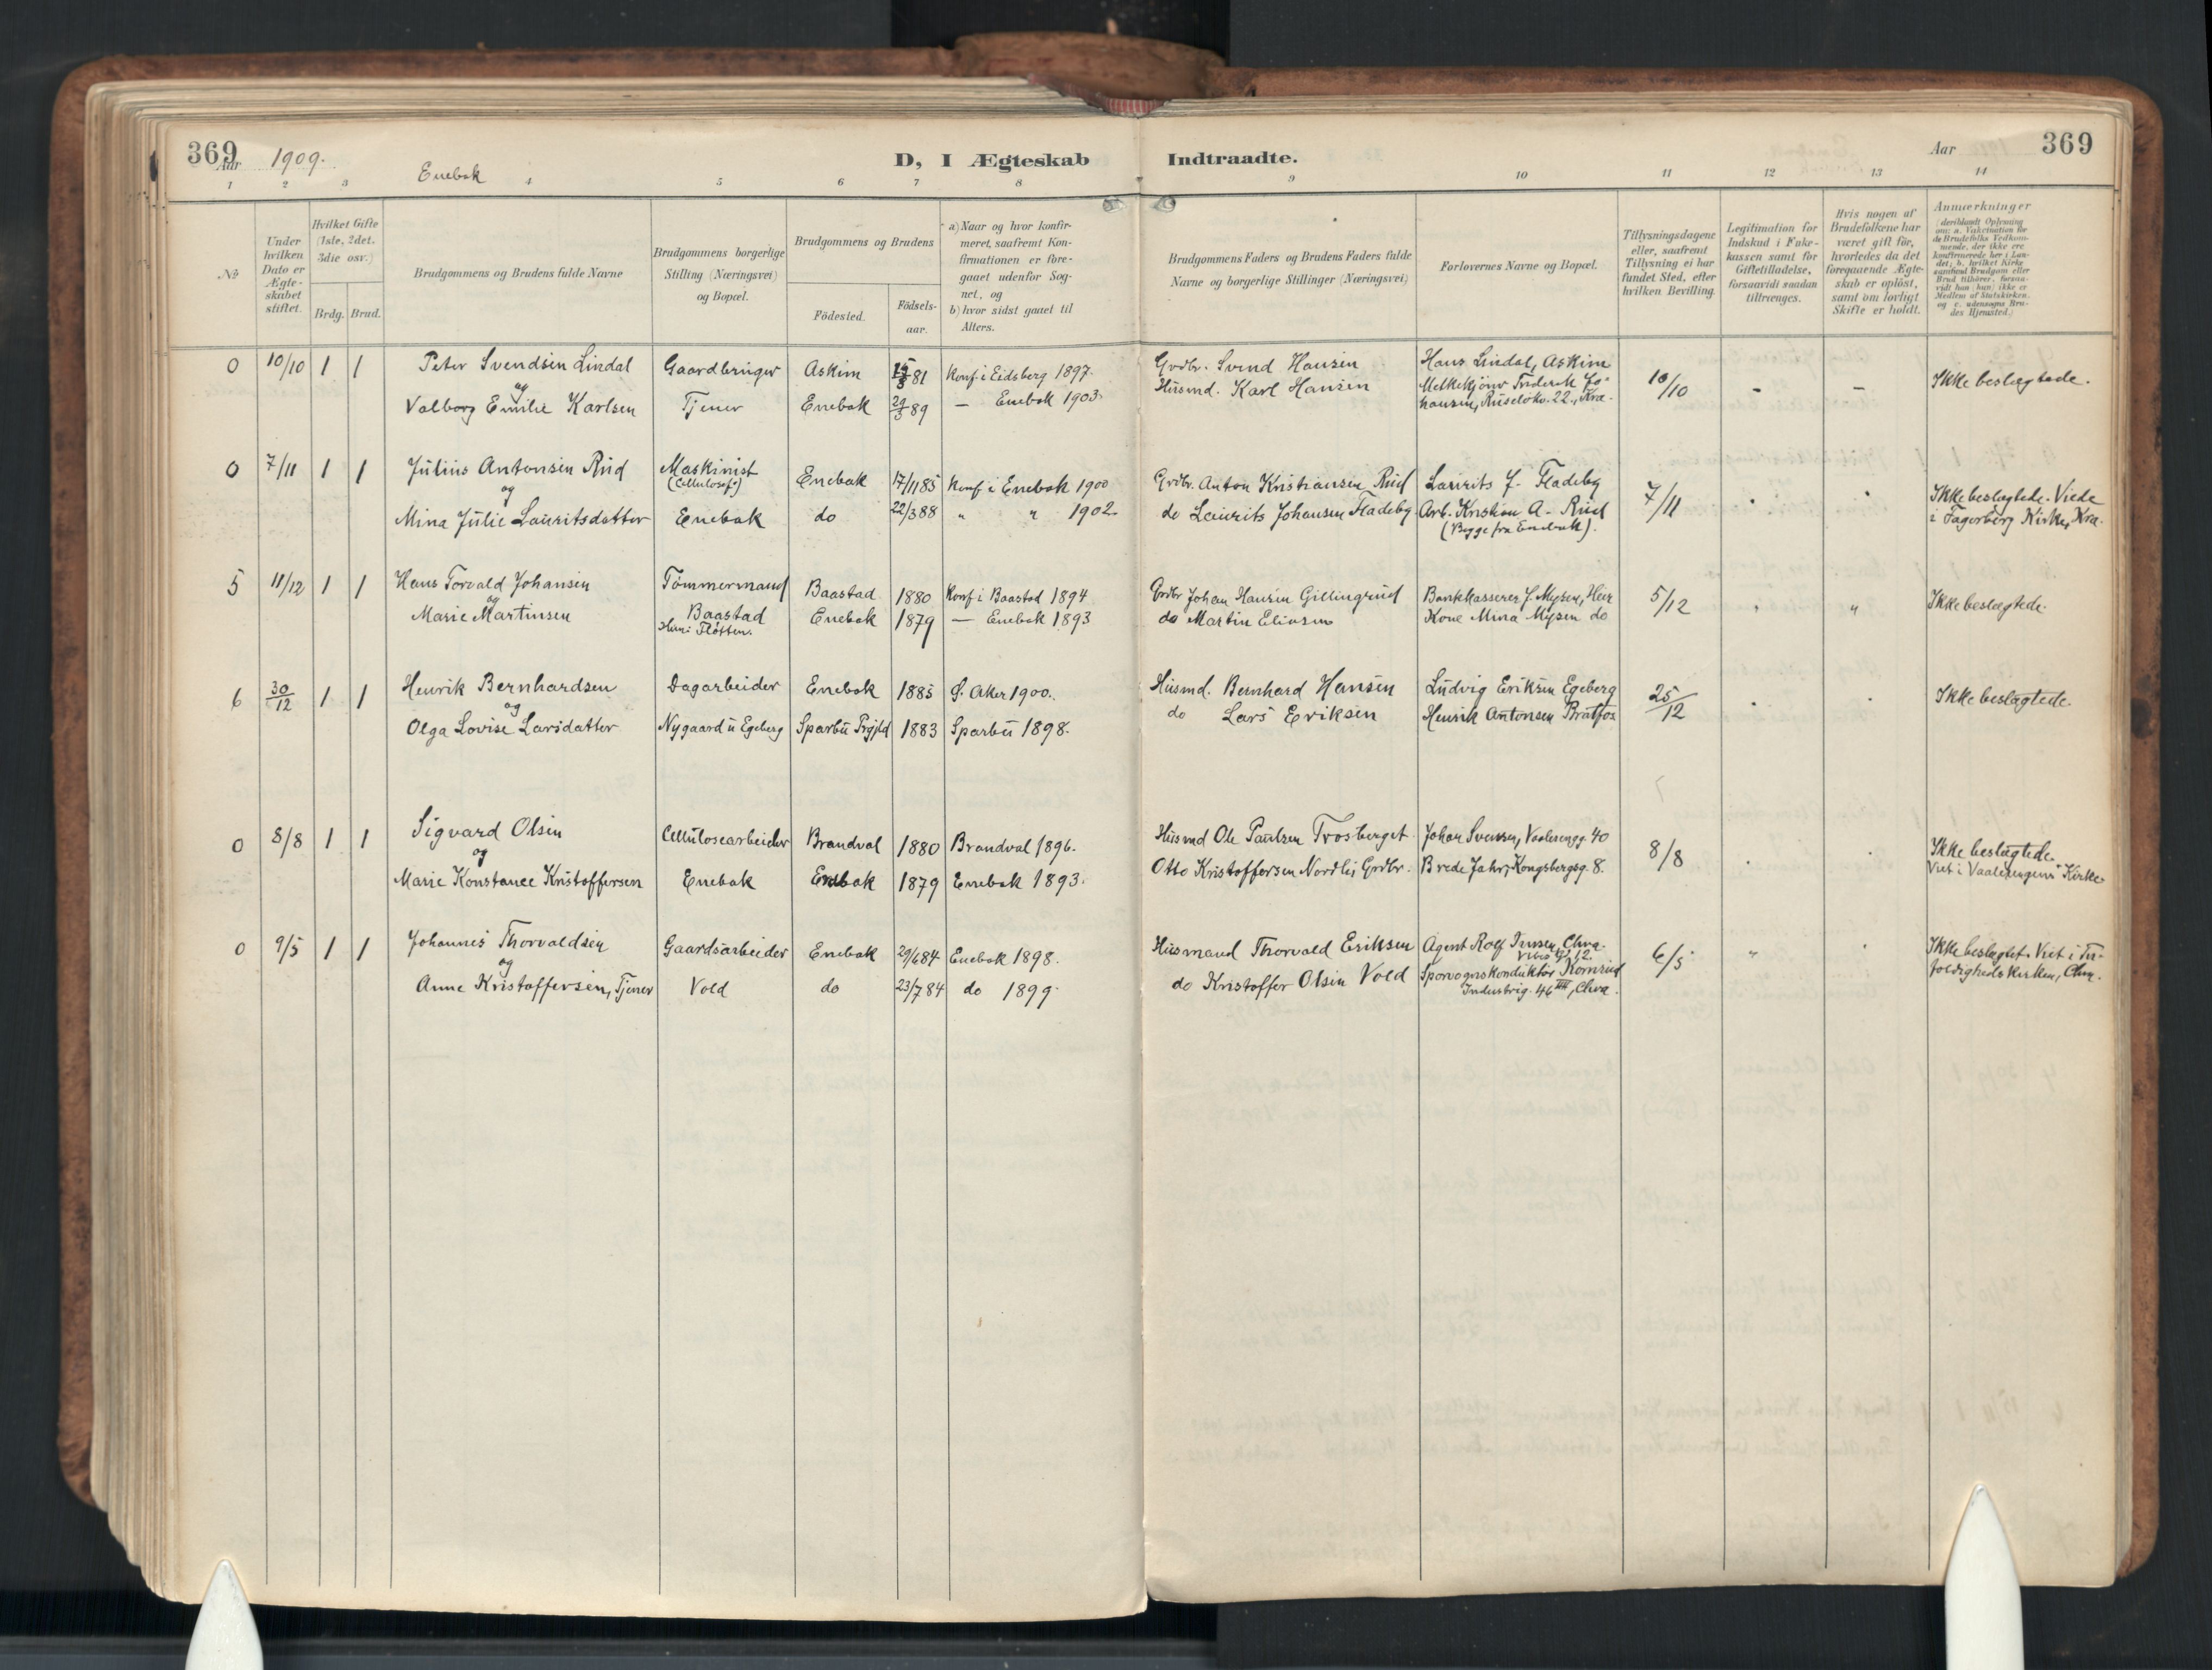 369
Aar 1909.
Enebak
D, I Ægteskab Indtraadte.
Aar
369
1 2 3 4 5 6 7 8 9 10 11 12 13 14
No
Under hvilken Dato er Ægte- skabet stiftet.
Hvilket Gifte (1ste, 2det, 3die osv.)
Brdg. Brud.
Brudgommens og Brudens fulde Navne
Brudgommens borgerlige Stilling (Næringsvei) og Bopæl.
Brudgommens og Brudens
Födested.
Födsels- aar.
a) Naar og hvor konfir- meret, saafremt Kon- firmationen er fore- gaaet udenfor Sog- net, og
b) hvor sidst gaaet til Alters.
Brudgommens Faders og Brudens Faders fulde Navne og borgerlige Stillinger (Næringsvei)
Forlovernes Navne og Bopæl.
Tillysningsdagene eller, saafremt Tillysning ei har fundet Sted, efter hvilken Bevilling.
Legitimation for Indskud i Enke- kassen samt for Giftetilladelse, forsaavidt saadan tiltrænges.
Hvis nogen af Brudefolkene har været gift för, hvorledes da det foregaaende Ægte- skab er oplöst, samt om lovligt Skifte er holdt.
Anmærkninger
(deriblandt Oplysning om: a. Vakcination for de Brudefolks Vedkom- mende, der ikke ere konfirmerede her i Lan- det; b. hvilket Kirke- samfund Brudgom eller Brud tilhörer, forsaa- vidt han (hun) ikke er Medlem af Statskirken, og c. udensogns Bru- des Hjemsted.)
0 10/10 1 1 Peter Svendsen Lindal Gaardbruger Askim 81 Konf. i Eidsberg 1897. Grdbr. Svend Hansen Hans Lindal, Askim 10/10 - - Ikke beslægtede.
og
Valborg Emilie Karlsen Tjener Enebak 29/3 89 — Enebak 1903. Husmd. Karl Hansen Melkekjører Frederik Jo-
hansen, Ruseløkv. 22., Kra.
0 7/11 1 1 Julius Antonsen Rud Maskinist Enebak 17/11 85 Konf i Enebak 1900 Grdbr. Anton Kristiansen Rud Laurits J. Fladeby 7/11 Ikke beslægtede. Viede
og (Cellulosef.)
Mina Julie Lauritsdatter Enebak do 22/3 88 " " 1902. do Laurits Johansen Fladeby Arb. Kristian A. Rud i Fagerborg Kirke, Kra.
(Begge fra Enebak).
5 11/12 1 1 Hans Torvald Johansen Tømmermand Baastad 1880 Konf i Baastad 1894 Grdbr Johan Hansen Gillingrud Bankkasserer J. Mysen, Her 5/12 " Ikke beslægtede.
og
Marie Martinsen Baastad Enebak 1879 — Enebak 1893 do Martin Eliasen Kone Mina Mysen do
Fløtten.
6 30/12 1 1 Henrik Bernhardsen Dagarbeider Enebak 1885 Ø. Aker 1900. Husmd. Bernhard Hansen Ludvig Eriksen Egeberg 25/12 Ikke beslægtede.
og
Olga Lovise Larsdatter Nygaard u Egeberg Sparbu 1883 Sparbu 1898. do Lars Eriksen Henrik Antonsen Bratfos
0 8/8 1 1 Sigvard Olsen Cellulosearbeider Brandval 1880 Brandval 1896. Husmd Ole Paulsen Frosberget Johan Svensen, Vaalereng. 40 8/8 Ikke beslægtede.
og
Marie Konstance Kristoffersen Enebak Enebak 1879 Enebak 1893. Otto Kristoffersen Nordli, Grdbr. Brede Jahr, Kongsbergsg. 8. Viet i Vaalerengens Kirke.
0 9/5 1 1 Johannes Thorvaldsen Gaardsarbeider Enebak 29/6 84 Enebak 1898. Husmand Thorvald Eriksen Agent Rolf Jensen, Chra. 6/5 " Ikke beslægtet. Viet i Tre-
og 12.
Anne Kristoffersen, Tjener Vold do 23/7 84 do 1899. do Kristoffer Olsen Vold Sporvognskonduktør Kornrud foldighedskirken, Chra.
Industrig. 46 III, Chra.